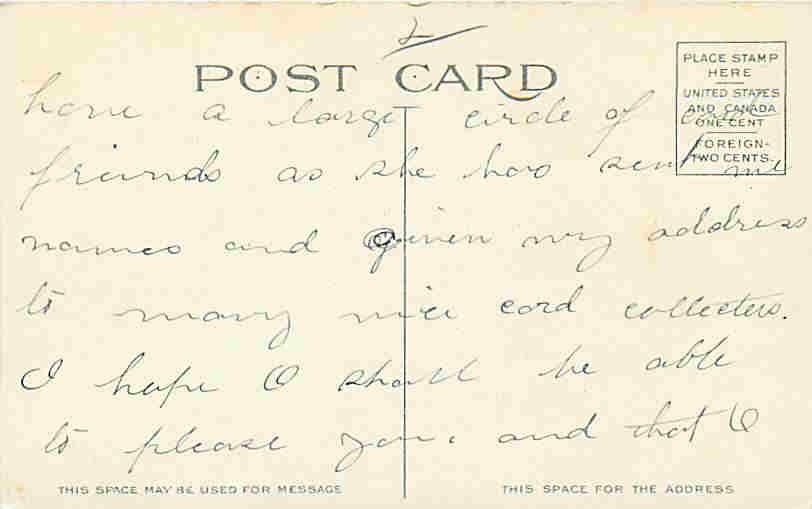 2
POST CARD
PLACE STAMP
HERE
UNITED STATES
AND CANADA
ONE CENT
FOREIGN-
TWO CENTS.
have a large circle of card
friends as she has sent me
names and given my address
to many nice card collecters.
I hope I shall be able
to please you, and that I
THIS SPACE MAY BE USED FOR MESSAGE
THIS SPACE FOR THE ADDRESS